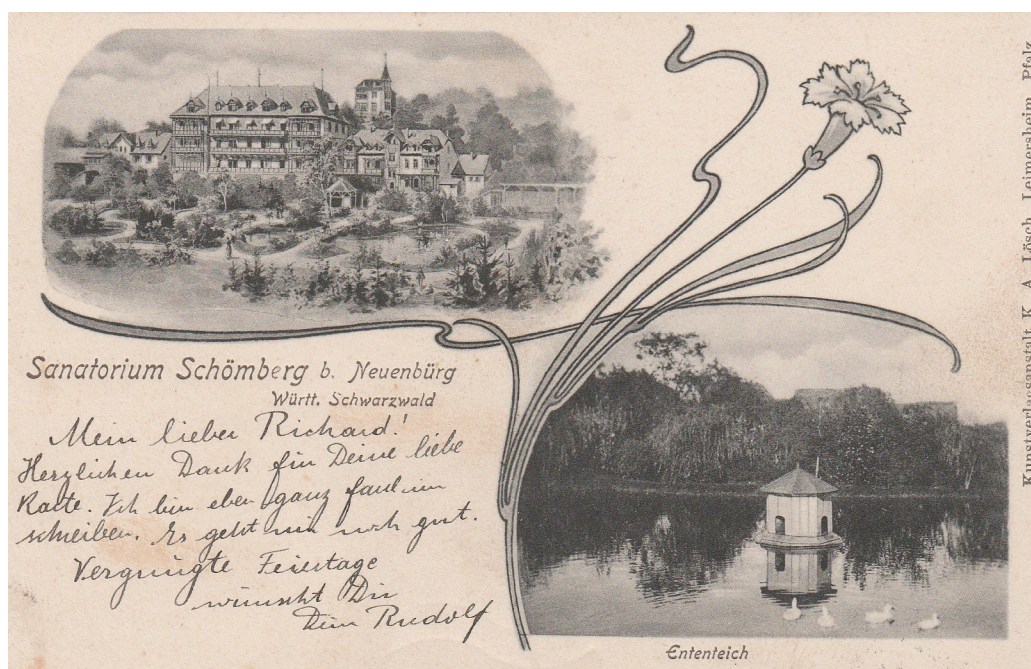 Sanatorium Schömberg b. Neuenbürg
Württ. Schwarzwald
Mein lieber Richard!
Herzlichen Dank für Deine liebe
Karte. Ich bin eben ganz faul im
schreiben. Es geht mir noch gut.
Vergnügte Feiertage
wünscht Dir
Dein Rudolf
Ententeich
Kunstverlagsanstalt K. A. Lösch, Leimersheim, Pfalz